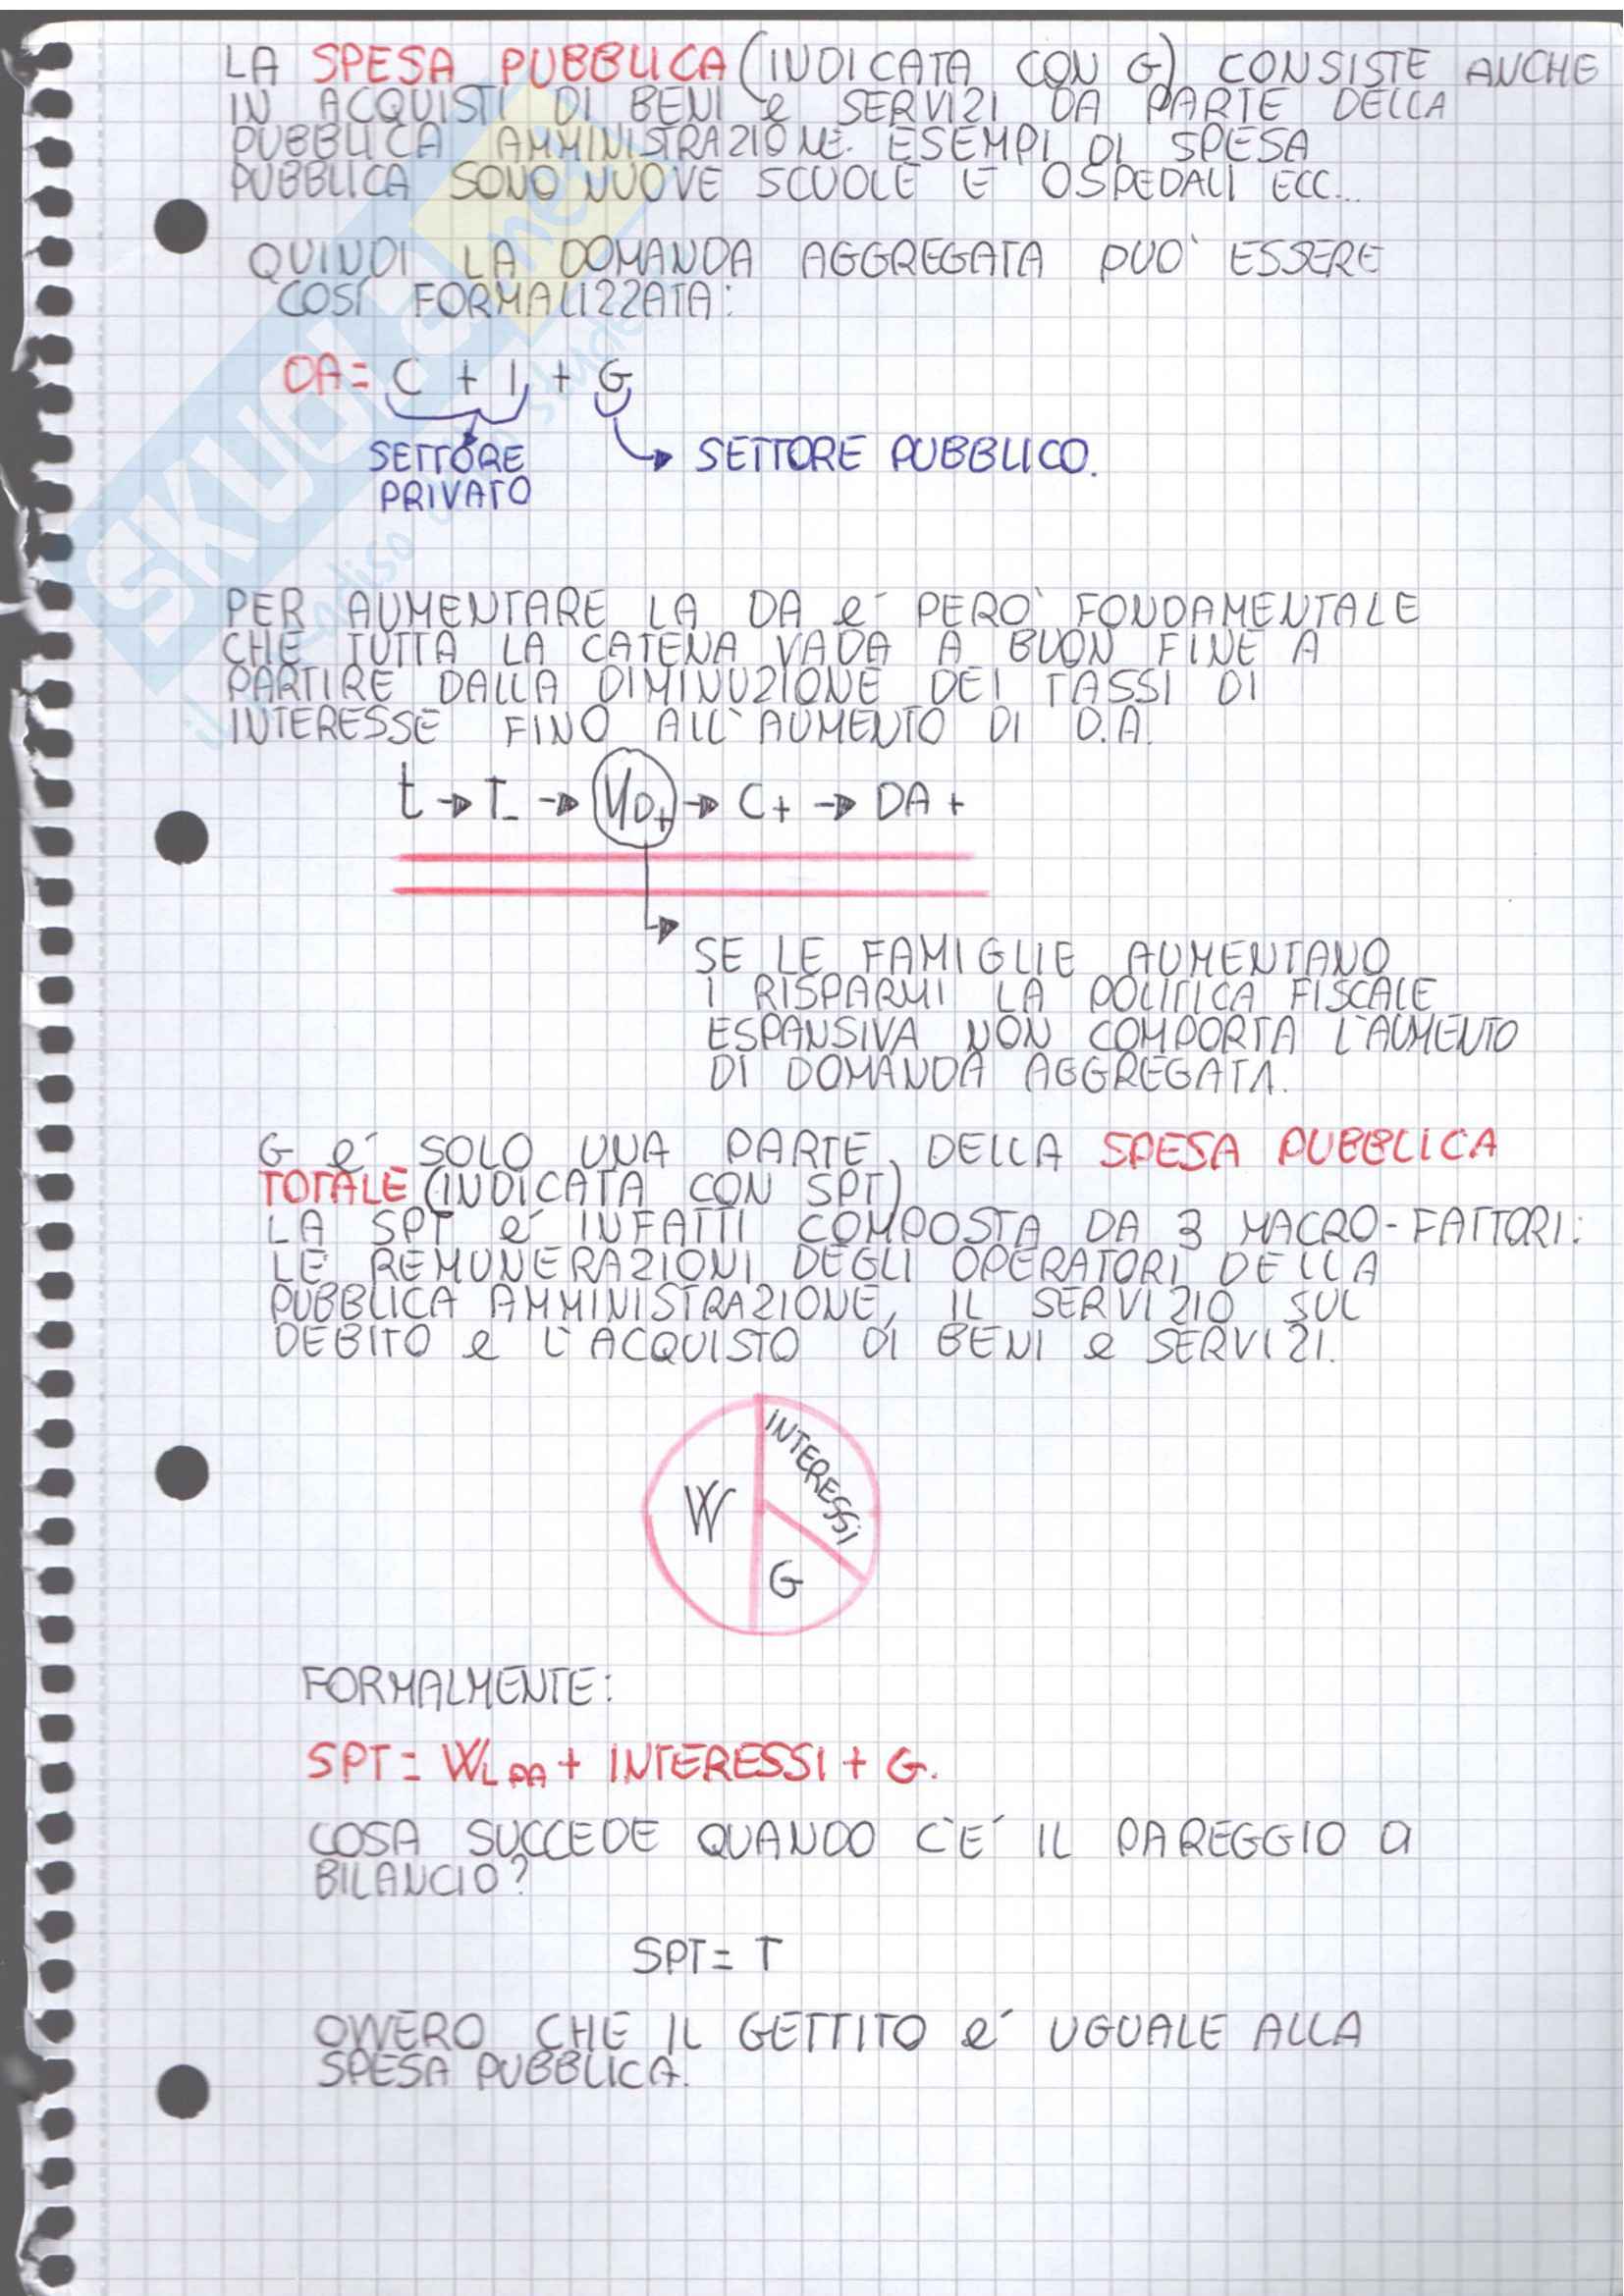 LA SPESA PUBBLICA (INDICATA CON G) CONSISTE ANCHE
IN ACQUISTI DI BENI e SERVIZI DA PARTE DELLA
PUBBLICA AMMINISTRAZIONE. ESEMPI DI SPESA
PUBBLICA SONO NUOVE SCUOLE E OSPEDALI ECC...
QUINDI LA DOMANDA AGGREGATA PUO' ESSERE
COSÍ FORMALIZZATA:
DA = C + I + G
SETTORE
PRIVATO
SETTORE PUBBLICO.
PER AUMENTARE LA DA é PERO' FONDAMENTALE
CHE TUTTA LA CATENA VADA A BUON FINE A
PARTIRE DALLA DIMINUZIONE DEI TASSI DI
INTERESSE FINO ALL'AUMENTO DI D.A.
t → T- → YD+ → C+ → DA +
SE LE FAMIGLIE AUMENTANO
I RISPARMI LA POLITICA FISCALE
ESPANSIVA NON COMPORTA L'AUMENTO
DI DOMANDA AGGREGATA.
G é SOLO UNA PARTE DELLA SPESA PUBBLICA
TOTALE (INDICATA CON SPT)
LA SPT é INFATTI COMPOSTA DA 3 MACRO-FATTORI:
LE REMUNERAZIONI DEGLI OPERATORI DELLA
PUBBLICA AMMINISTRAZIONE, IL SERVIZIO SUL
DEBITO e L'ACQUISTO DI BENI e SERVIZI.
INTERESSI
W
G
FORMALMENTE:
SPT = WL PA + INTERESSI + G.
COSA SUCCEDE QUANDO C'E' IL PAREGGIO a
BILANCIO?
SPT = T
OVVERO CHE IL GETTITO é UGUALE ALLA
SPESA PUBBLICA.